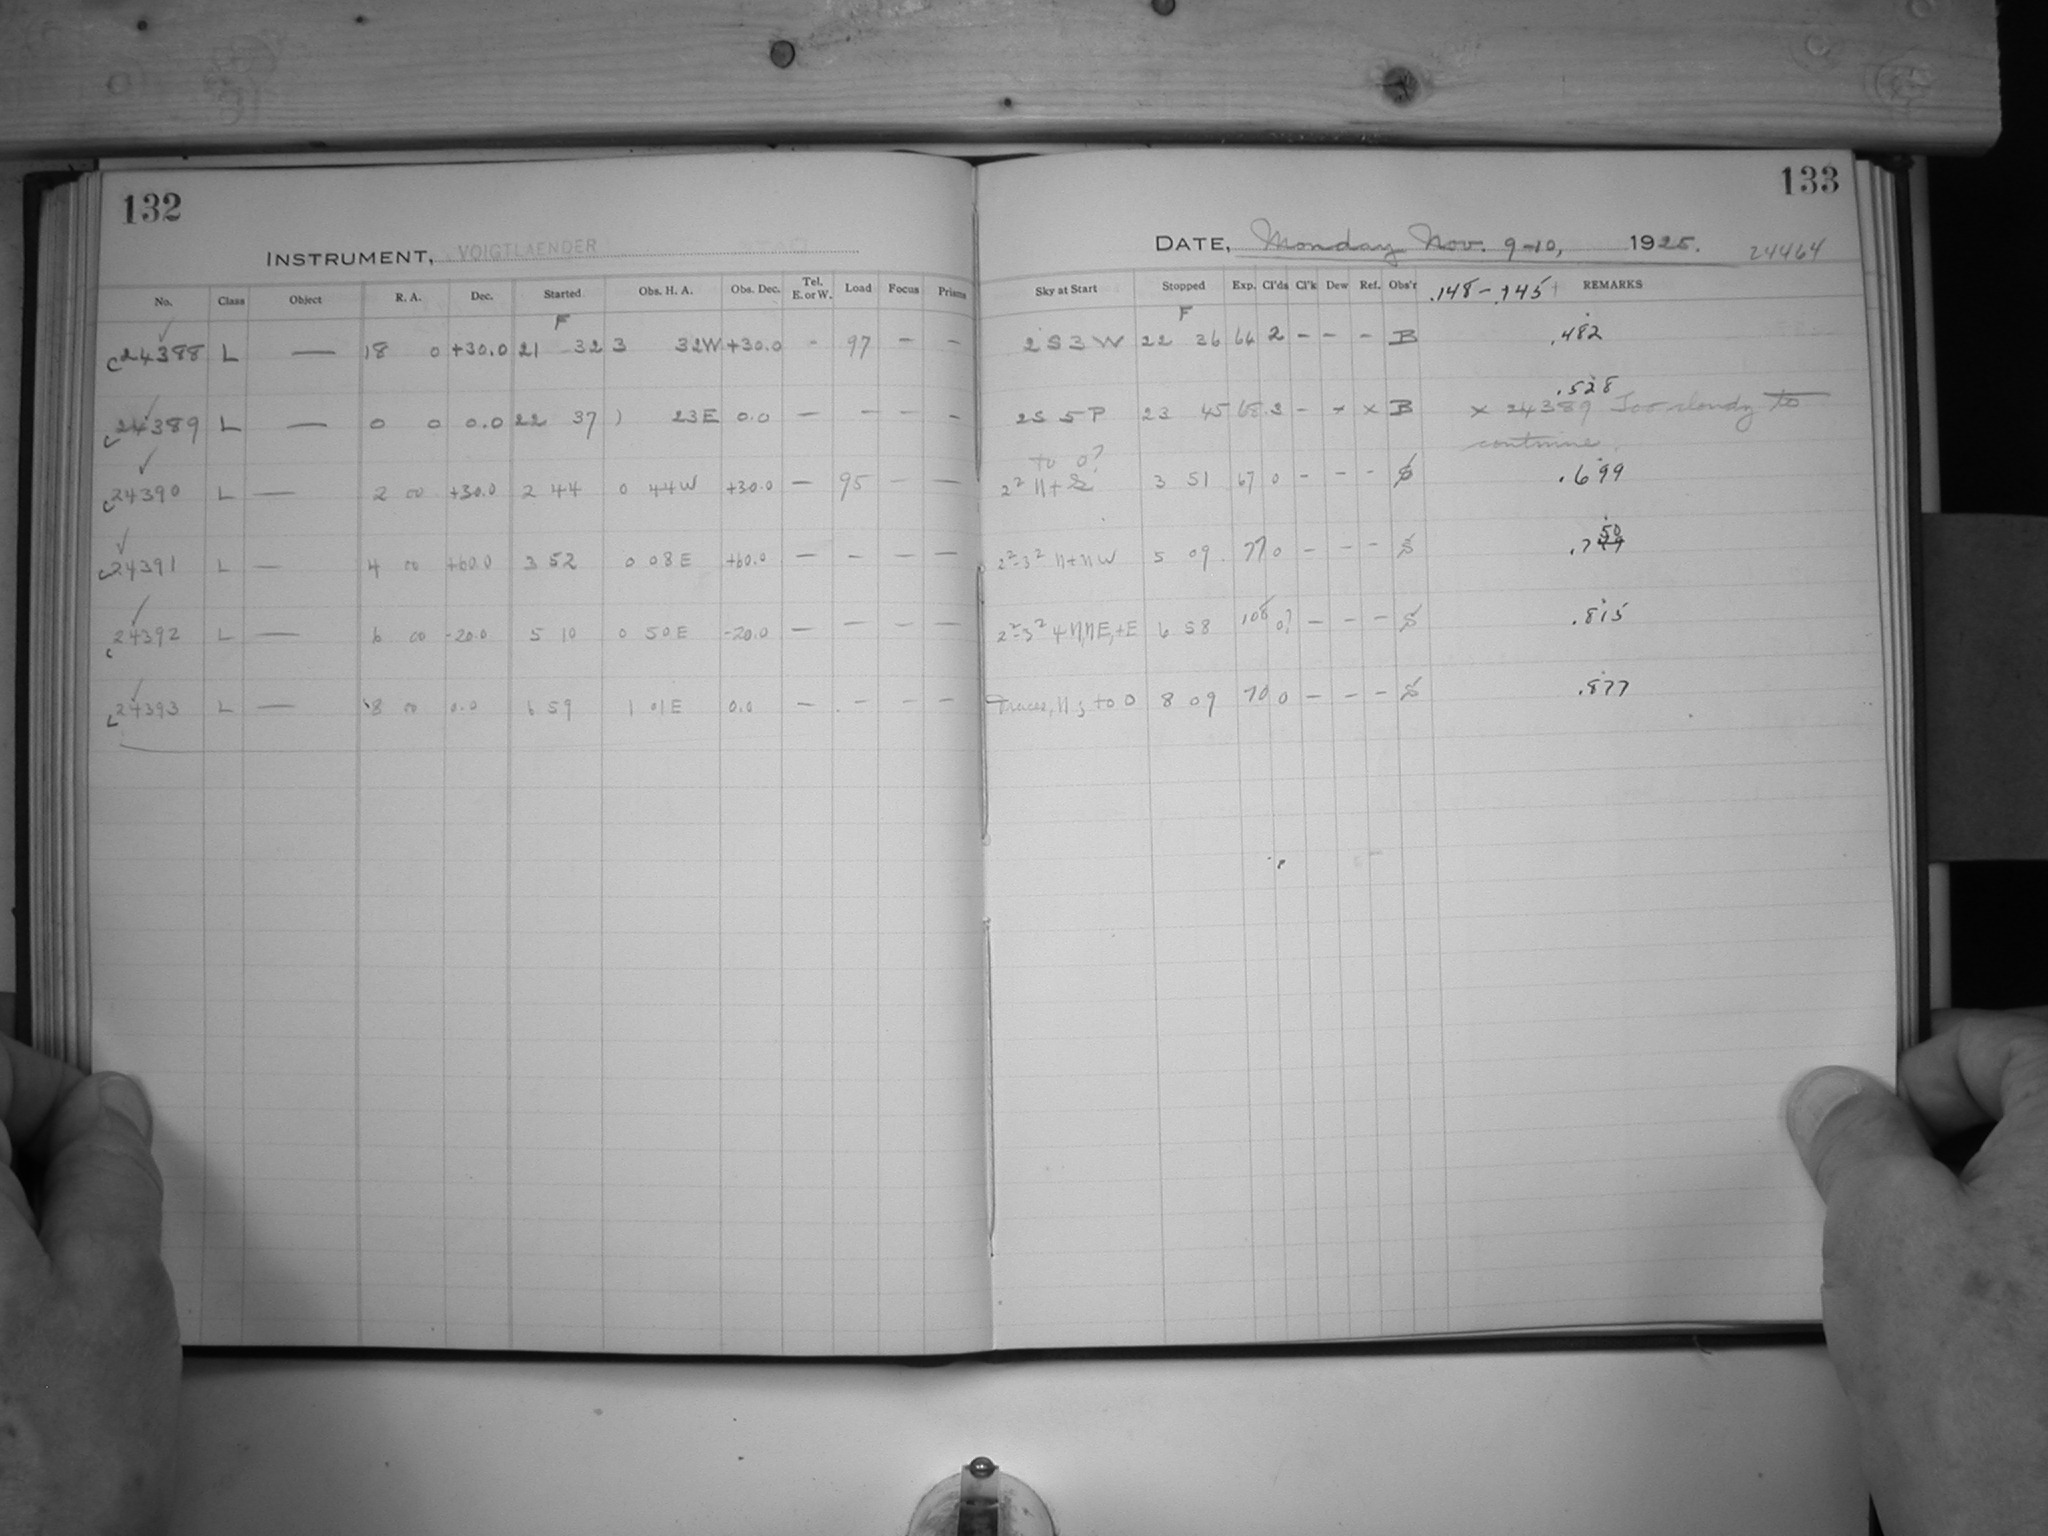 132
INSTRUMENT, VOIGTLAENDER
No. Class Object R. A. Dec. Started Obs. H. A. Obs. Dec. Tel. E. or W. Load Focus Prisms
F
c24388 L — 18 0 +30.0 21 32 3 32W +30.0 - 97 — —
c24389 L — 0 0 0.0 22 37 1 23E 0.0 — — — —
c24390 L — 2 00 +30.0 2 44 0 44W +30.0 — 95 — —
c24391 L — 4 00 +60.0 3 52 0 08E +60.0 — — — —
c24392 L — 6 00 -20.0 5 10 0 50E -20.0 — — — —
c24393 L — 8 00 0.0 6 59 1 01E 0.0 — — — —
133
DATE, Monday Nov. 9-10, 1925. 24464
Sky at Start Stopped Exp. Cl'ds Cl'k Dew Ref. Obs'r .148 - .145+ REMARKS
F
2S3W 22 36 64 2 - - - B .482
.528
2S 5P 23 45 68 3 - x x B x 24389 Too cloudy to
continue.
to 0?
2² N+ 3 51 67 0 - - - S .699
50
2²-3² N+NW 5 09 77 0 - - - S .749
2²-3² 4 N, NE, +E 6 58 108 0? - - - S .815
Traces, N; to 0 8 09 70 0 - - - S .877